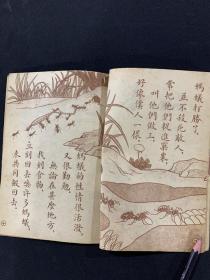 螞蟻打勝了，
並不殺死敵人，
常把他們捉進巢來，
叫他們做工，
好像僕人一樣。
螞蟻的性情很活潑，
又很勤勉，
無論在甚麼地方，
找到食物，
立刻回去喚許多螞蟻，
來共同搬回去。